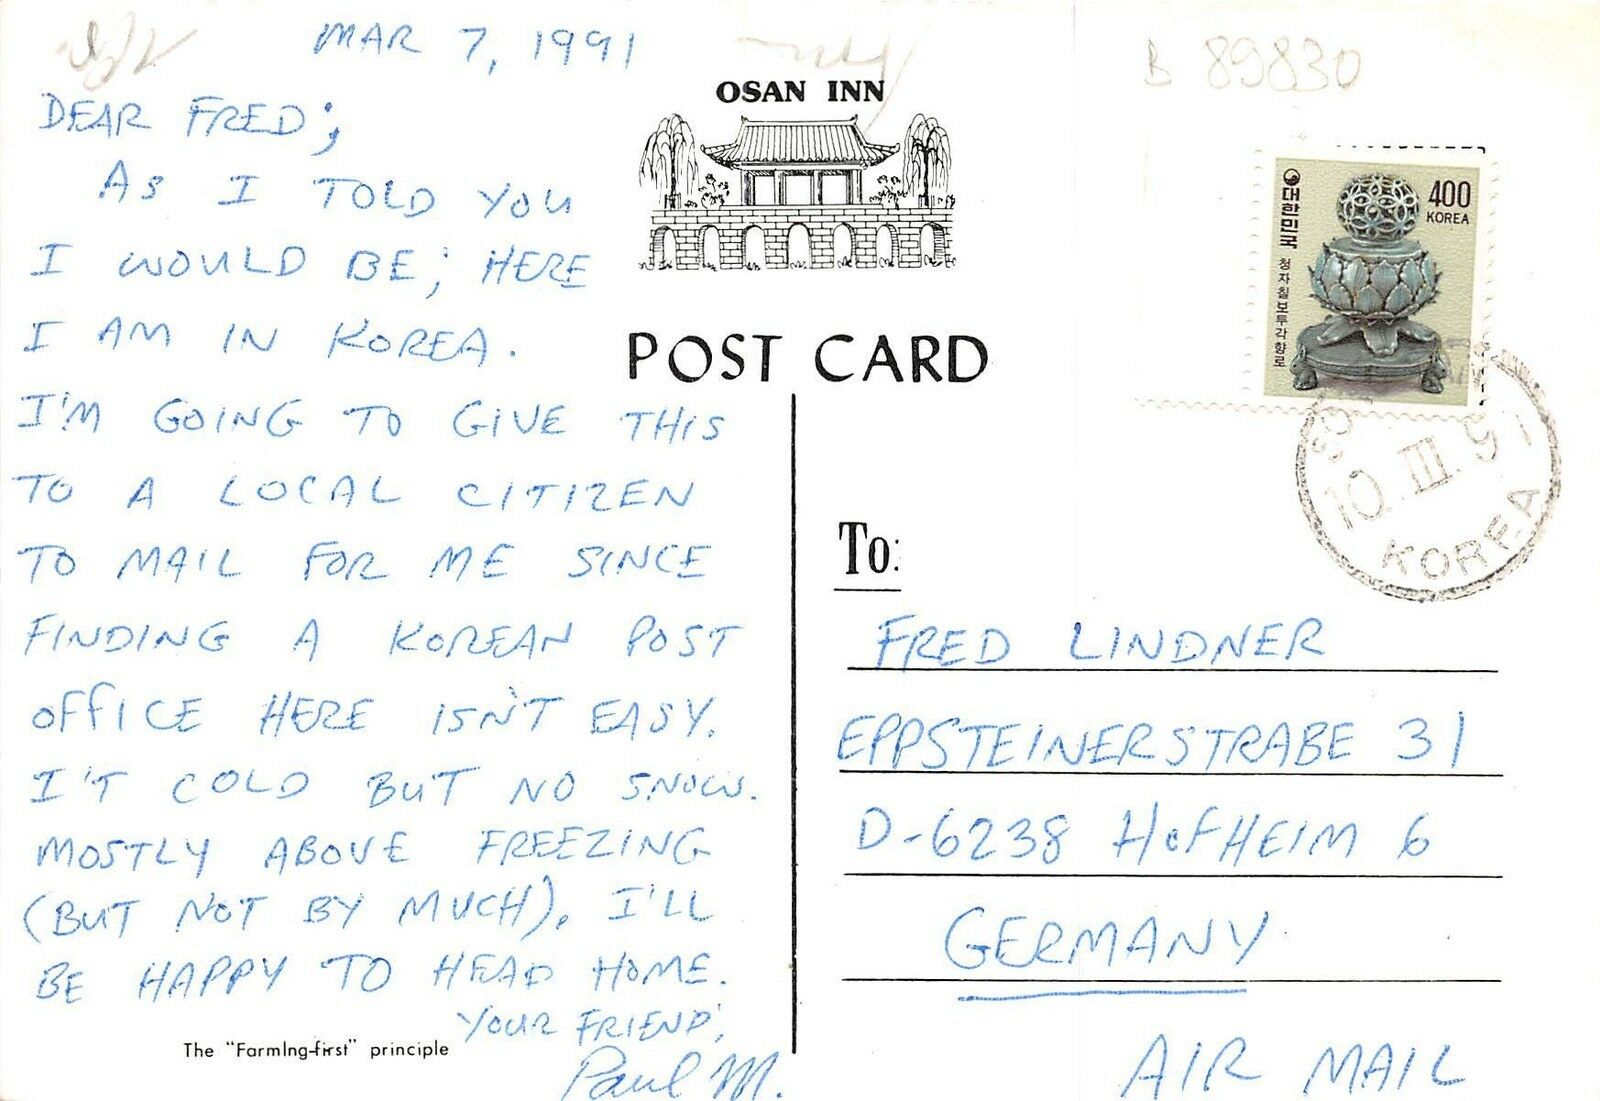 MAR 7, 1991
DEAR FRED;
AS I TOLD YOU
I WOULD BE; HERE
I AM IN KOREA.
I'M GOING TO GIVE THIS
TO A LOCAL CITIZEN
TO MAIL FOR ME SINCE
FINDING A KOREAN POST
OFFICE HERE ISN'T EASY.
I'T COLD BUT NO SNOW.
MOSTLY ABOVE FREEZING
(BUT NOT BY MUCH). I'LL
BE HAPPY TO HEAD HOME.
YOUR FRIEND;
Paul M.
The "Farming-first" principle
OSAN INN
POST CARD
B 89830
대한민국
청자칠보투각향로
400
KOREA
10.III.9
KOREA
To:
FRED LINDNER
EPPSTEINERSTRABE 31
D-6238 HOFHEIM 6
GERMANY
AIR MAIL